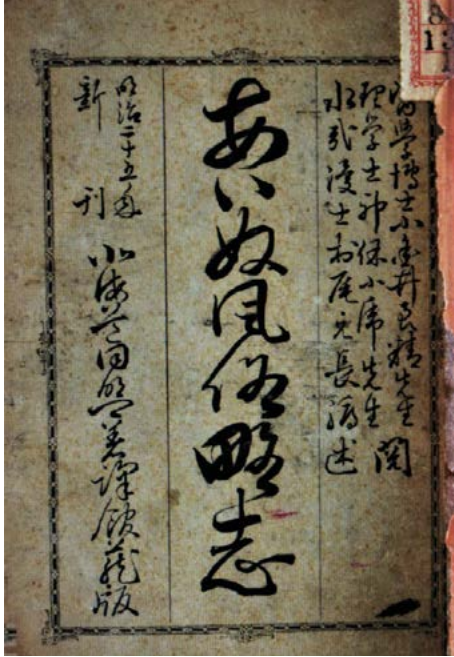 医学博士小金井良精先生
理学士神保小虎先生 閲
水哉漫士村尾元長編述
あいぬ風俗略志
明治二十五年
新刊
北海道同盟著譯館蔵版
8
13